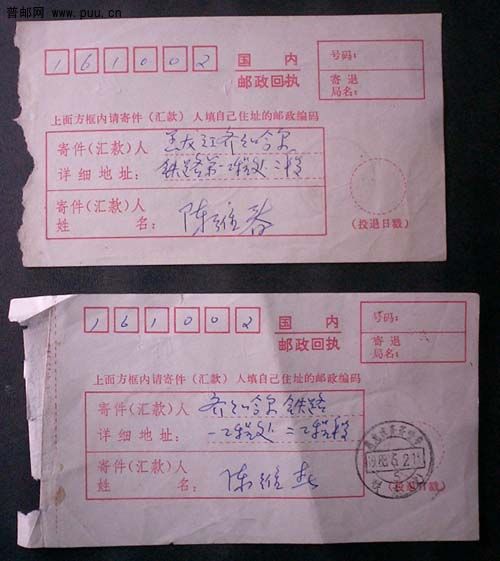 普邮网 www.puu.cn
161002
国内
邮政回执
号码：
寄退
局名：
上面方框内请寄件（汇款）人填自己住址的邮政编码
寄件（汇款）人 黑龙江齐齐哈尔
详细地址： 铁路第一工程处二段
寄件（汇款）人
姓名： 陈维春
（投退日戳）
161002
国内
邮政回执
号码：
寄退
局名：
上面方框内请寄件（汇款）人填自己住址的邮政编码
寄件（汇款）人 齐齐哈尔铁路
详细地址： 一工程处二工程段
寄件（汇款）人
姓名： 陈维春
（投退日戳）